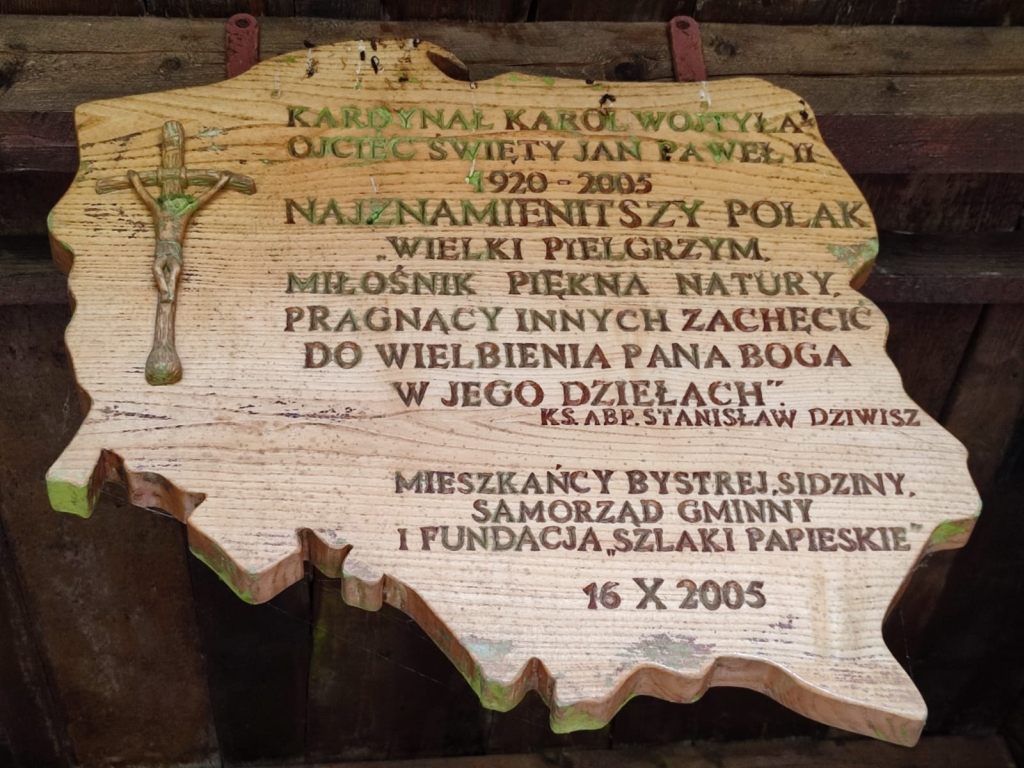 KARDYNAŁ KAROL WOJTYŁA
OJCIEC ŚWIĘTY JAN PAWEŁ II
1920 - 2005
NAJZNAMIENITSZY POLAK
„WIELKI PIELGRZYM,
MIŁOŚNIK PIĘKNA NATURY,
PRAGNĄCY INNYCH ZACHĘCIĆ
DO WIELBIENIA PANA BOGA
W JEGO DZIEŁACH”.
KS. ABP. STANISŁAW DZIWISZ
MIESZKAŃCY BYSTREJ, SIDZINY,
SAMORZĄD GMINNY
I FUNDACJA „SZLAKI PAPIESKIE”
16 X 2005